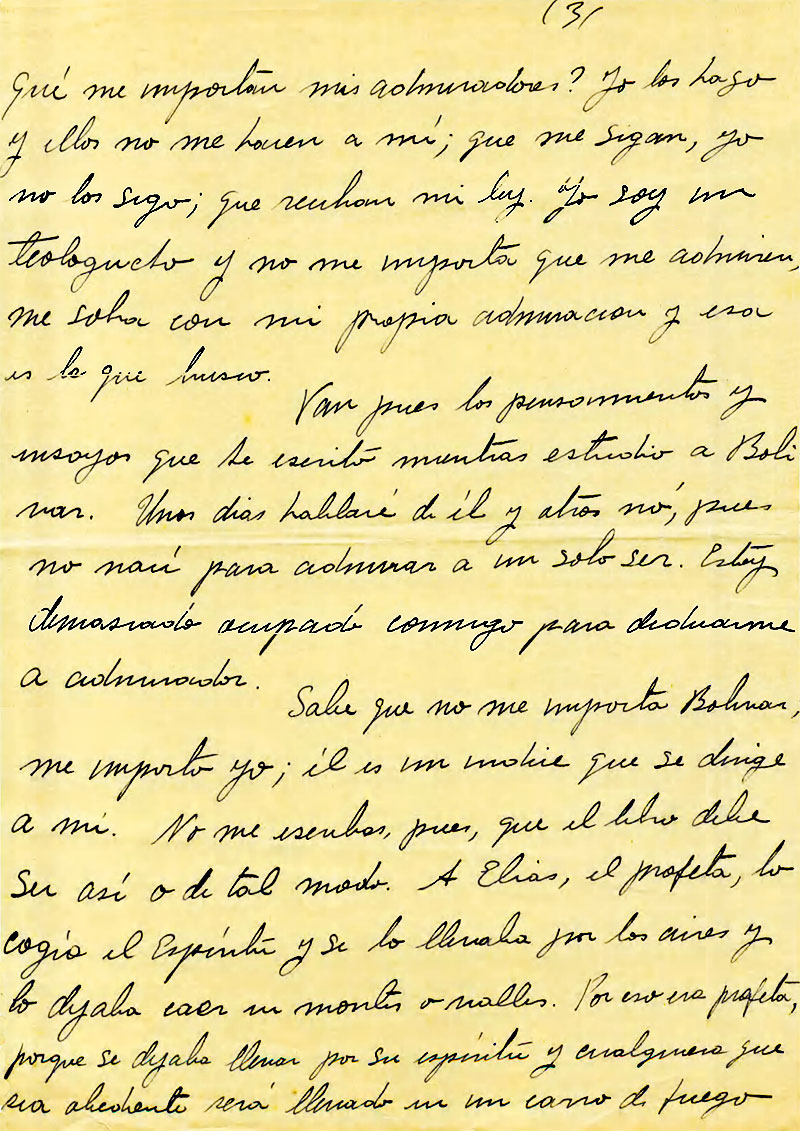 (3)
Qué me importan mis admiradores? Yo los hago
y ellos no me hacen a mí; que me sigan, yo
no los sigo; que reciban mi luz. Yo soy un
teologucho y no me importa que me admiren,
me sobra con mi propia admiracion y esa
es la que busco.
Van pues los pensamientos y
ensayos que te escribo mientras estudio a Boli
var. Unos dias hablaré de él y otros nó, pues
no nací para admirar a un solo ser. Estoy
demasiado ocupado conmigo para dedicarme
a admirador.
Sabe que no me importa Bolivar,
me importo yo; él es un indice que se dirige
a mi. No me escribas, pues, que el libro debe
ser así o de tal modo. A Elias, el profeta, lo
cogía el Espíritu y se lo llevaba por los aires y
lo dejaba caer en montes o valles. Por eso era profeta,
porque se dejaba llevar por su espíritu y cualquiera que
sea obediente será llevado en un carro de fuego